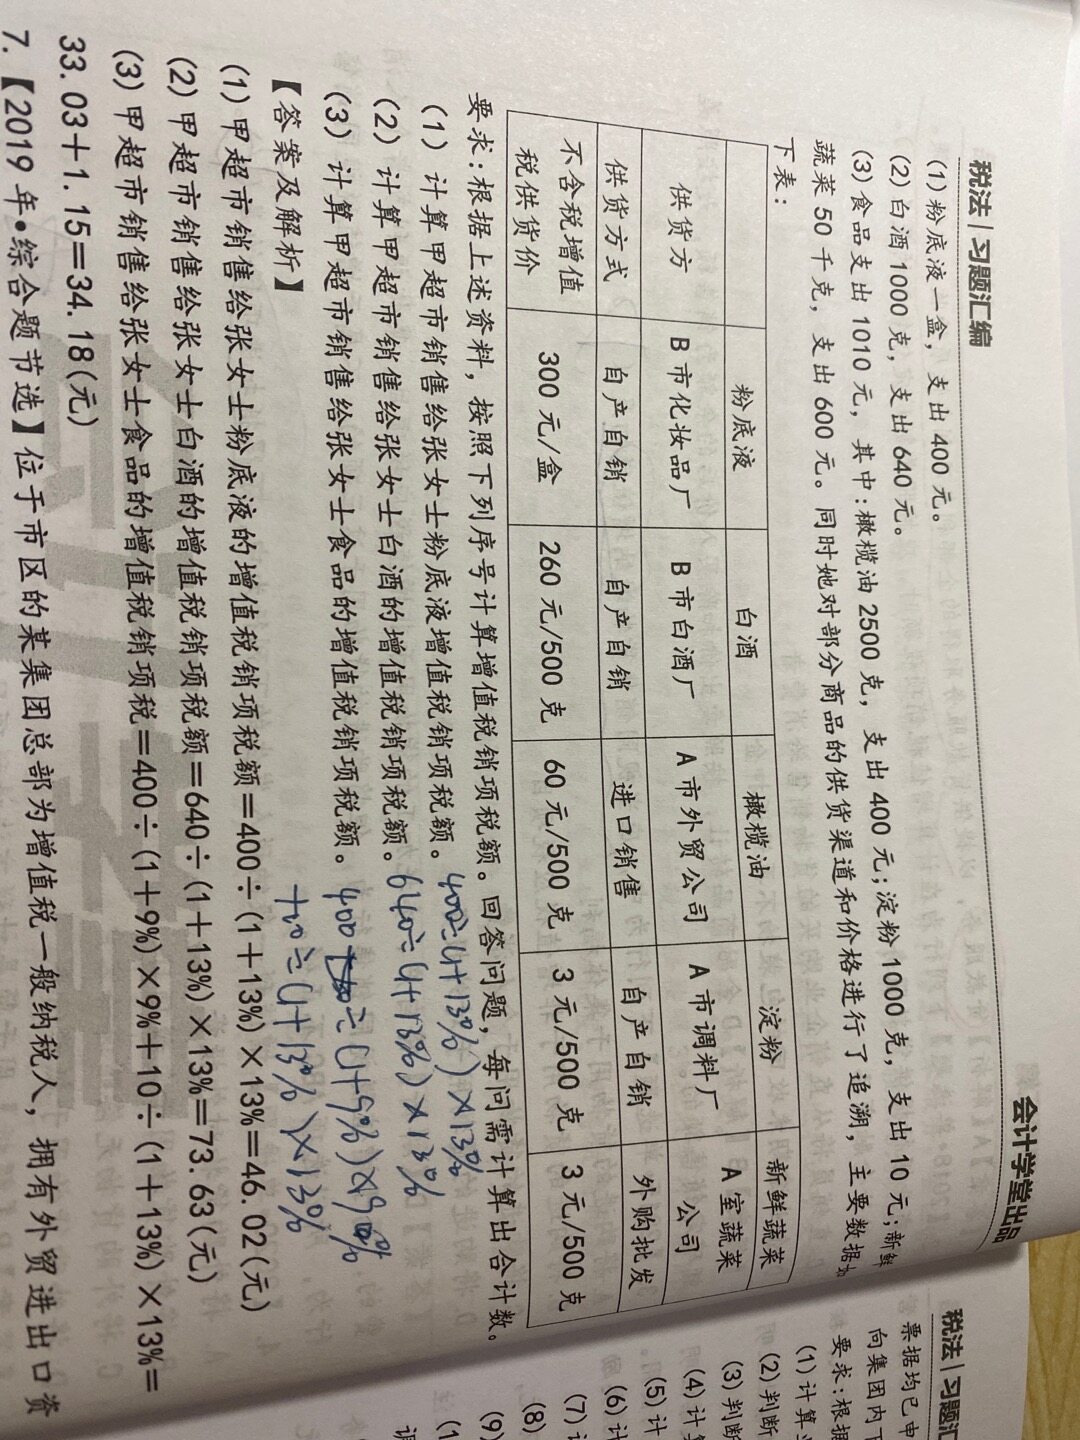 税法|习题汇编
会计学堂出品
(1)粉底液一盒，支出 400 元。
(2)白酒 1000 克，支出 640 元。
(3)食品支出 1010 元，其中:橄榄油 2500 克，支出 400 元;淀粉 1000 克，支出 10 元;新鲜
蔬菜 50 千克，支出 600 元。同时她对部分商品的供货渠道和价格进行了追溯，主要数据如
下表:
粉底液 白酒 橄榄油 淀粉 新鲜蔬菜
供货方 B 市化妆品厂 B 市白酒厂 A 市外贸公司 A 市调料厂 A 室蔬菜
公司
供货方式 自产自销 自产自销 进口销售 自产自销 外购批发
不含税增值
税供货价 300 元/盒 260 元/500 克 60 元/500 克 3 元/500 克 3 元/500 克
要求:根据上述资料，按照下列序号计算增值税销项税额。回答问题，每问需计算出合计数。
(1) 计算甲超市销售给张女士粉底液增值税销项税额。 400÷(1+13%)×13%
(2) 计算甲超市销售给张女士白酒的增值税销项税额。 640÷(1+13%)×13%
(3) 计算甲超市销售给张女士食品的增值税销项税额。 400÷(1+9%)×9%
+10÷(1+13%)×13%
【答案及解析】
(1)甲超市销售给张女士粉底液的增值税销项税额=400÷(1+13%)×13%=46.02(元)
(2)甲超市销售给张女士白酒的增值税销项税额=640÷(1+13%)×13%=73.63(元)
(3)甲超市销售给张女士食品的增值税销项税=400÷(1+9%)×9%+10÷(1+13%)×13%=
33.03+1.15=34.18(元)
7.【2019 年•综合题节选】位于市区的某集团总部为增值税一般纳税人，拥有外贸进出口资
税法|习题汇
票据均已申
向集团内下
要求:根据
(1)计算
(2)判断
(3)判断
(4)计算
(5)计
(6)计
(7)
(8)
(9)